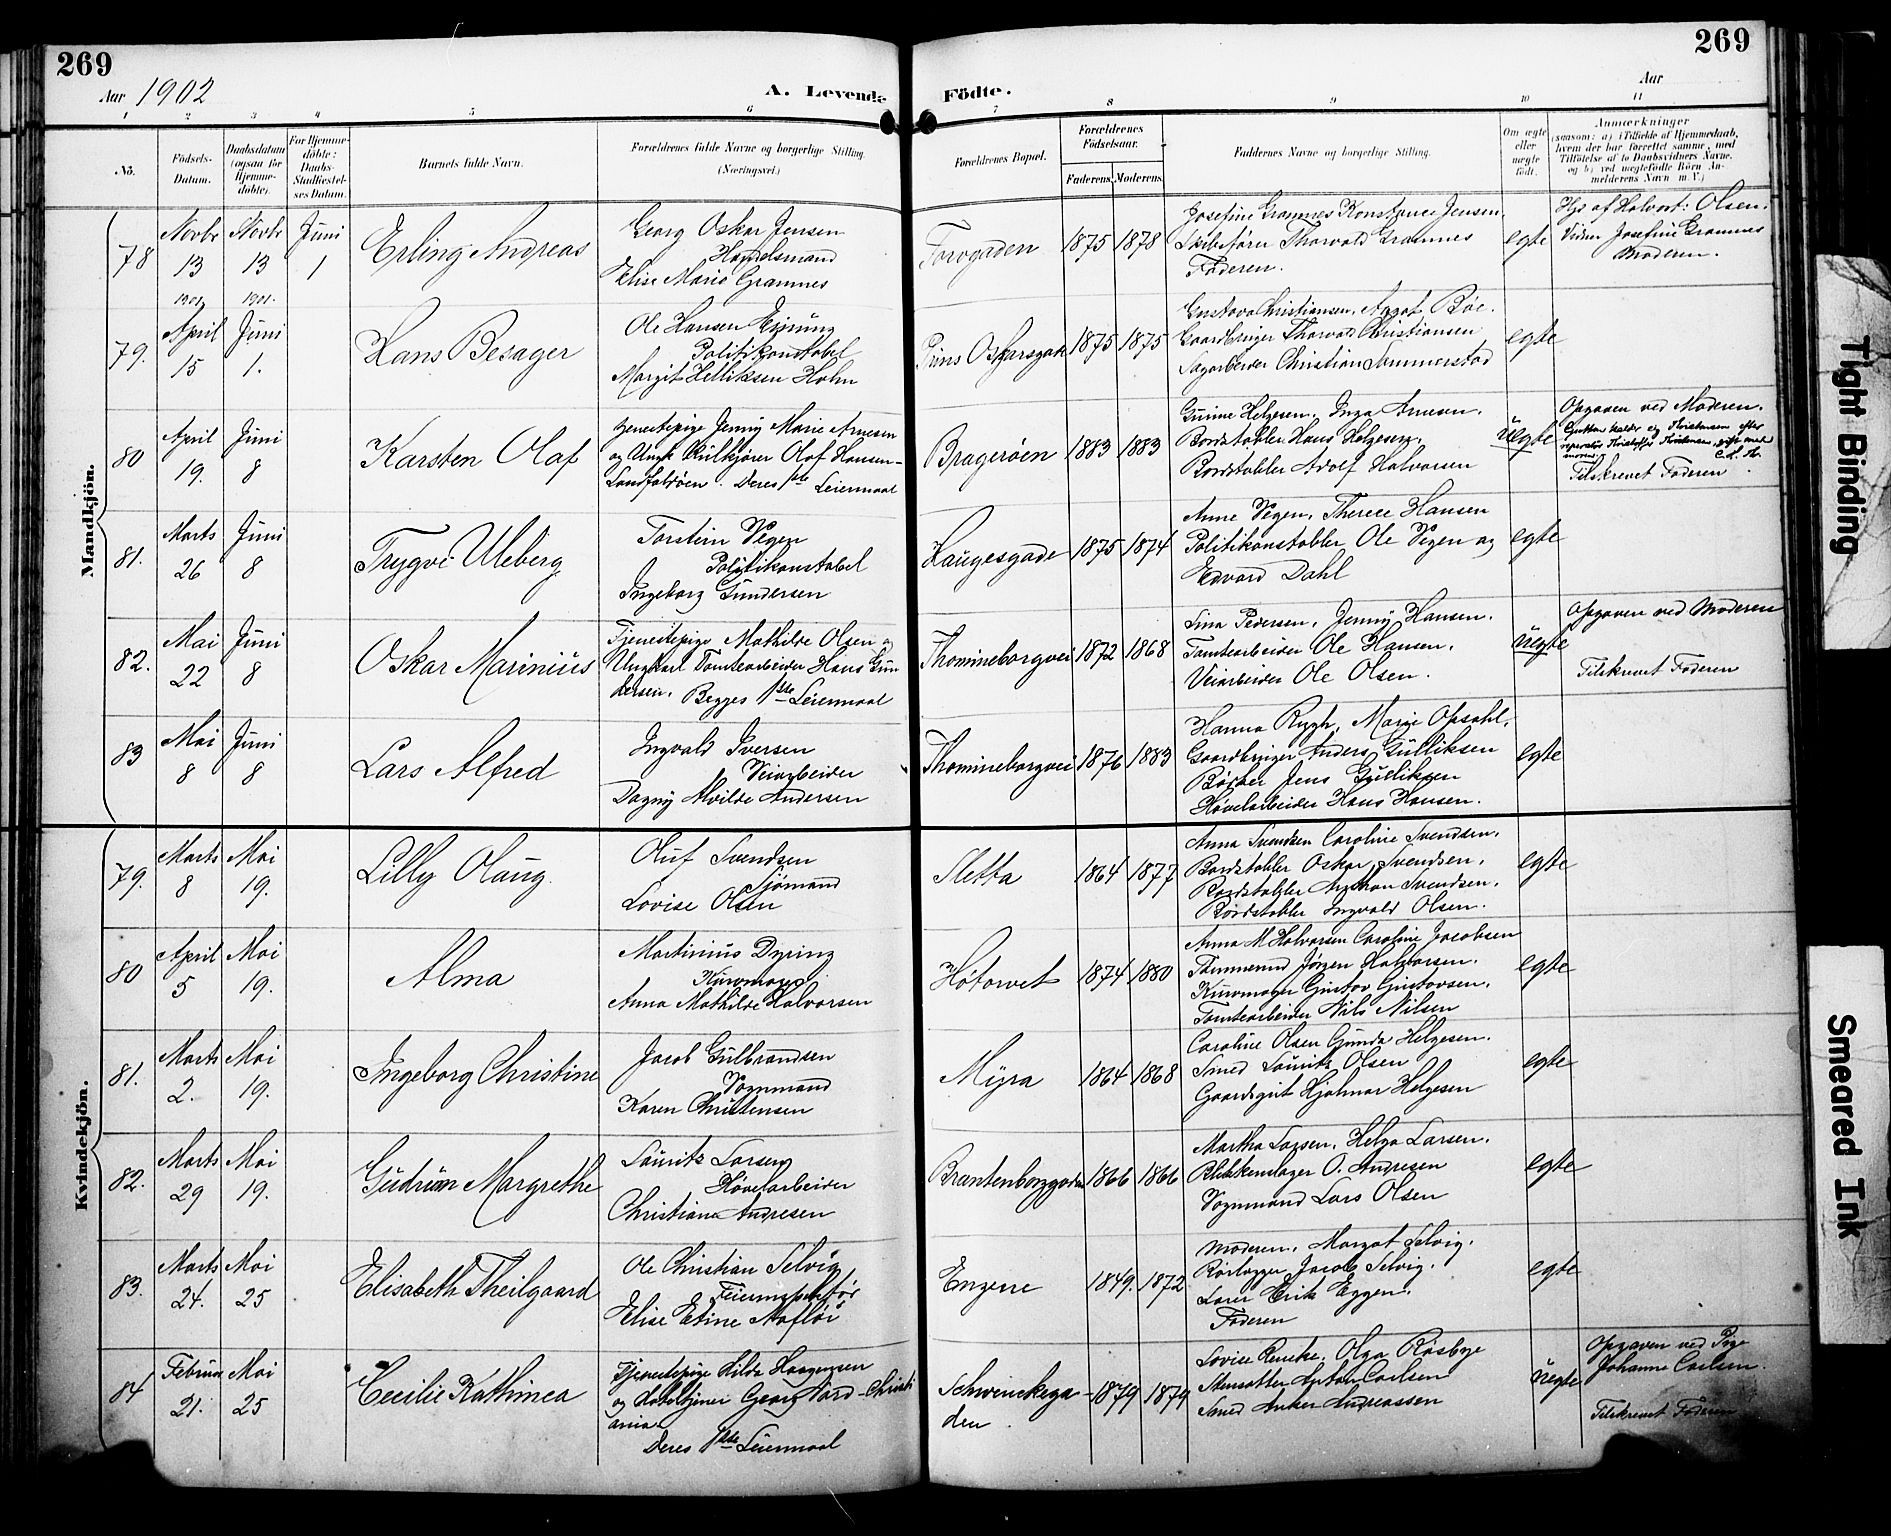 269
269
Aar 1902
A. Levende Födte.
Aar
1 2 3 4 5 6 7 8 9 10 11
No.
Födsels-
Datum.
Daabsdatum
(ogsaa for
Hjemme-
döbte).
For Hjemme-
döbte:
Daabs-
Stadfæstel-
ses Datum.
Barnets fulde Navn.
Forældrenes fulde Navne og borgerlige Stilling.
(Næringsvei.)
Forældrenes Bopæl.
Forældrenes
Födselsaar.
Faderens. Moderens.
Faddernes Navne og borgerlige Stilling.
Om ægte
eller
uægte
födt.
Anmærkninger
(saasom: a) i Tilfælde af Hjemmedaab,
hvem der har forrettet samme, med
Tilföielse af to Daabsvidners Navne,
og b) ved uægtefödte Börn An-
melderens Navn m. V.)
Mandkjön.
78
Novbr
13
1901
Novbr
13
1901.
Juni
1
Erling Andreas
Georg Oskar Jensen
Handelsmand
Elise Marie Gramnes
Torvgaden
1875 1878
Josefine Gramnes Konstance Jensen.
Thorvald Gramnes
Faderen.
egte
Hjd af Halvort: Olsen.
Vidner Josefine Gramnes
Moderen.
79.
April
15
Juni
1.
Hans Besager
Ole Hansen
Politikonstabel
Margit Helliksen Holm
Prins Oskarsgade
1875 1875
Gustava Christiansen, Aagot Bøe.
Gaardbruger Thorvald Christiansen
Sagarbeider Christian Sommerstad
egte
80
April
19.
Juni
8
Karsten Olaf
Tjenestepige Jenny Marie Arnesen
og Ungk Kulkjører Olaf Hansen-
Landfaldøen. Deres 1ste Leiermaal
Bragerøen
1883 1883
Gurine Helgesen, Inga Arnesen.
Bordstabler Hans Helgesen.
Bordstabler Adolf Halvorsen
uegte
Opgaven ved Moderen.
Tilskrevet Faderen
81.
Marts
26
Juni
8
Trygve Uleberg
Torstein Vegen
Politikonstabel
Ingeborg Gundersen
Haugesgade
1875 1874
Anne Vegen, Therese Hansen
Politikonstabler Ole Vegen og
Edvard Dahl
egte
82.
Mai
22
Juni
8
Oskar Marinius
Tjenestepige Mathilde Olsen og
Ungkarl Tomtearbeider Hans Gun
dersen. Begges 1ste Leiermaal
Thomineborgvei
1872 1868
Lina Pedersen, Jenny Hansen.
Tomtearbeider Ole Hansen.
Veiarbeider Ole Olsen.
uegte
Opgaven ved Moderen
Tilskrevet Faderen
83
Mai
8
Juni
8
Lars Alfred
Ingvald Iversen
Veiarbeider
Dagny Alvilde Andersen
Thomineborgvei
1876 1883
Hanna Rugh, Marie Opsahl.
Gaardbruger Anders Gulliksen
Bøcker Jens Gulliksen
Høvelarbeider Hans Hansen.
egte
Kvindekjön.
79.
Marts
8
Mai
19.
Lilly Olaug.
Oluf Svendsen
Sjømand
Lovise Olsen
Sletta
1864 1877
Anna Svendsen Caroline Svendsen.
Bordstabler Oskar Svendsen.
Bordstabler Arthur Svendsen.
Bordstabler Ingvald Olsen.
egte
80
April
5
Mai
19.
Alma
Martinius Dyring
Kurvmager
Anna Mathilde Halvorsen
Høtorvet
1874 1880
Anna M Halvorsen Caroline Jacobsen
Tømmermd Jørgen Halvorsen.
Kurvmager Gustav Gustavsen.
Tomtearbeider Nils Nilsen
egte
81.
Marts
2.
Mai
19.
Ingeborg Christine
Jacob Gulbrandsen
Vognmand
Karen Christensen
Myra
1864 1868
Caroline Olsen Gunda Helgesen.
Smed Lauritz Olsen
Gaardsgut Hjalmar Helgesen
egte
82.
Marts
29
Mai
19.
Gudrun Margrethe
Lauritz Larsen
Høvelarbeider
Christiane Andresen
Brantenborggaden
1866 1866
Martha Larsen, Helga Larsen.
Blikkenslager O. Andresen
Vognmand Lars Olsen
egte
83.
Marts
24.
Mai
25
Elisabeth Theilgaard
Ole Christian Selvig
Feierinspektør
Elise Etine
Engene
1849. 1872
Moderen, Margot Selvig.
Rørlægger Jacob Selvig.
Lærer Erik Eggen.
Faderen
egte
84
Februar
21.
Mai
25
Cecilie Kathinca
Tjenestepige Hilda Haagensen
og Hoteltjener Georg Nord-Christi
ania
Deres 1ste Leiermaal
Schwenckega
den.
1879 1879
Lovise Olga Røsbye
Stensætter Anton Carlsen
Smed Anker Andreassen
uegte
Opgaven ved Pige
Johanne Carlsen.
Tilskrevet Faderen
Tight Binding
Smeared Ink